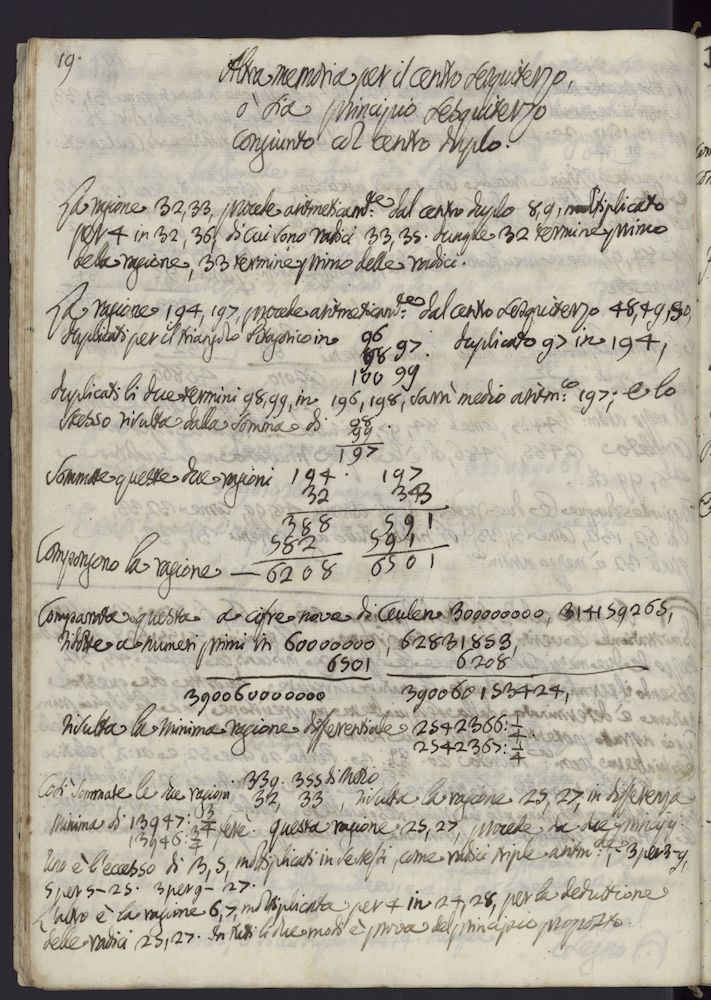 19.
Altra memoria per il centro sesquiterzo,
o' sia principio sesquiterzo
congiunto col centro duplo.
La ragione 32, 33, procede aritmeticam.te dal centro duplo 8, 9, moltiplicato
per 4 in 32, 36, di cui sono radici 33, 35. dunque 32 termine primo
della ragione, 33 termine primo delle radici.
La ragione 194, 197, procede aritmeticam.te dal centro sesquiterzo 48, 49, 50,
duplicati per il triangolo Pitagorico in 96
98 97. duplicato 97 in 194,
100 99
duplicati li due termini 98, 99, in 196, 198, sarà medio aritm.co 197; e lo
stesso risulta dalla somma di 98
99
197
Sommate queste due ragioni 194. 197
32 33
388 591
582 591
Compongono la ragione — 6208 6501
Comparata questa a cifre nove di Ceulen 300000000, 314159265,
ridotte a numeri primi in 60000000, 62831853,
6501 6208
390060000000 390060153424,
risulta la minima ragione differentiale 2542366: 1/4
2542365: 1/4
Così sommate le due ragioni 339. 355 di Metio
32, 33, risulta la ragione 25, 27, in differenza
minima di 13947: 3/4
13946: 3/4
questa ragione 25, 27, procede da due principj
Uno è l'eccesso di 3, 5, moltiplicati in se stessi, come radici triple aritm.che, 3 per 3-9,
5 per 5-25. 3 per 9-27.
L'altro è la ragione 6, 7, moltiplicata per 4 in 24, 28, per la deduttione
delle radici 25, 27. In tutti li due modi è prova del principio proposto.